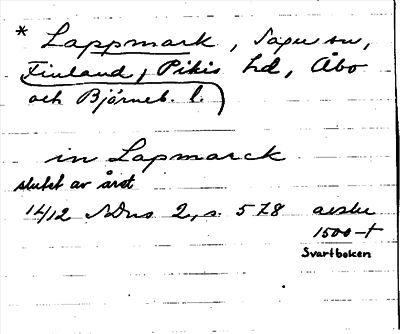 * Lappmark, Sagu sn,
Finland, Pikis hd, Åbo
och Björneb. l.)
in Lapmarck
slutet av året
14/12 NDns 2, s. 578 avskr
1500-t
Svartboken